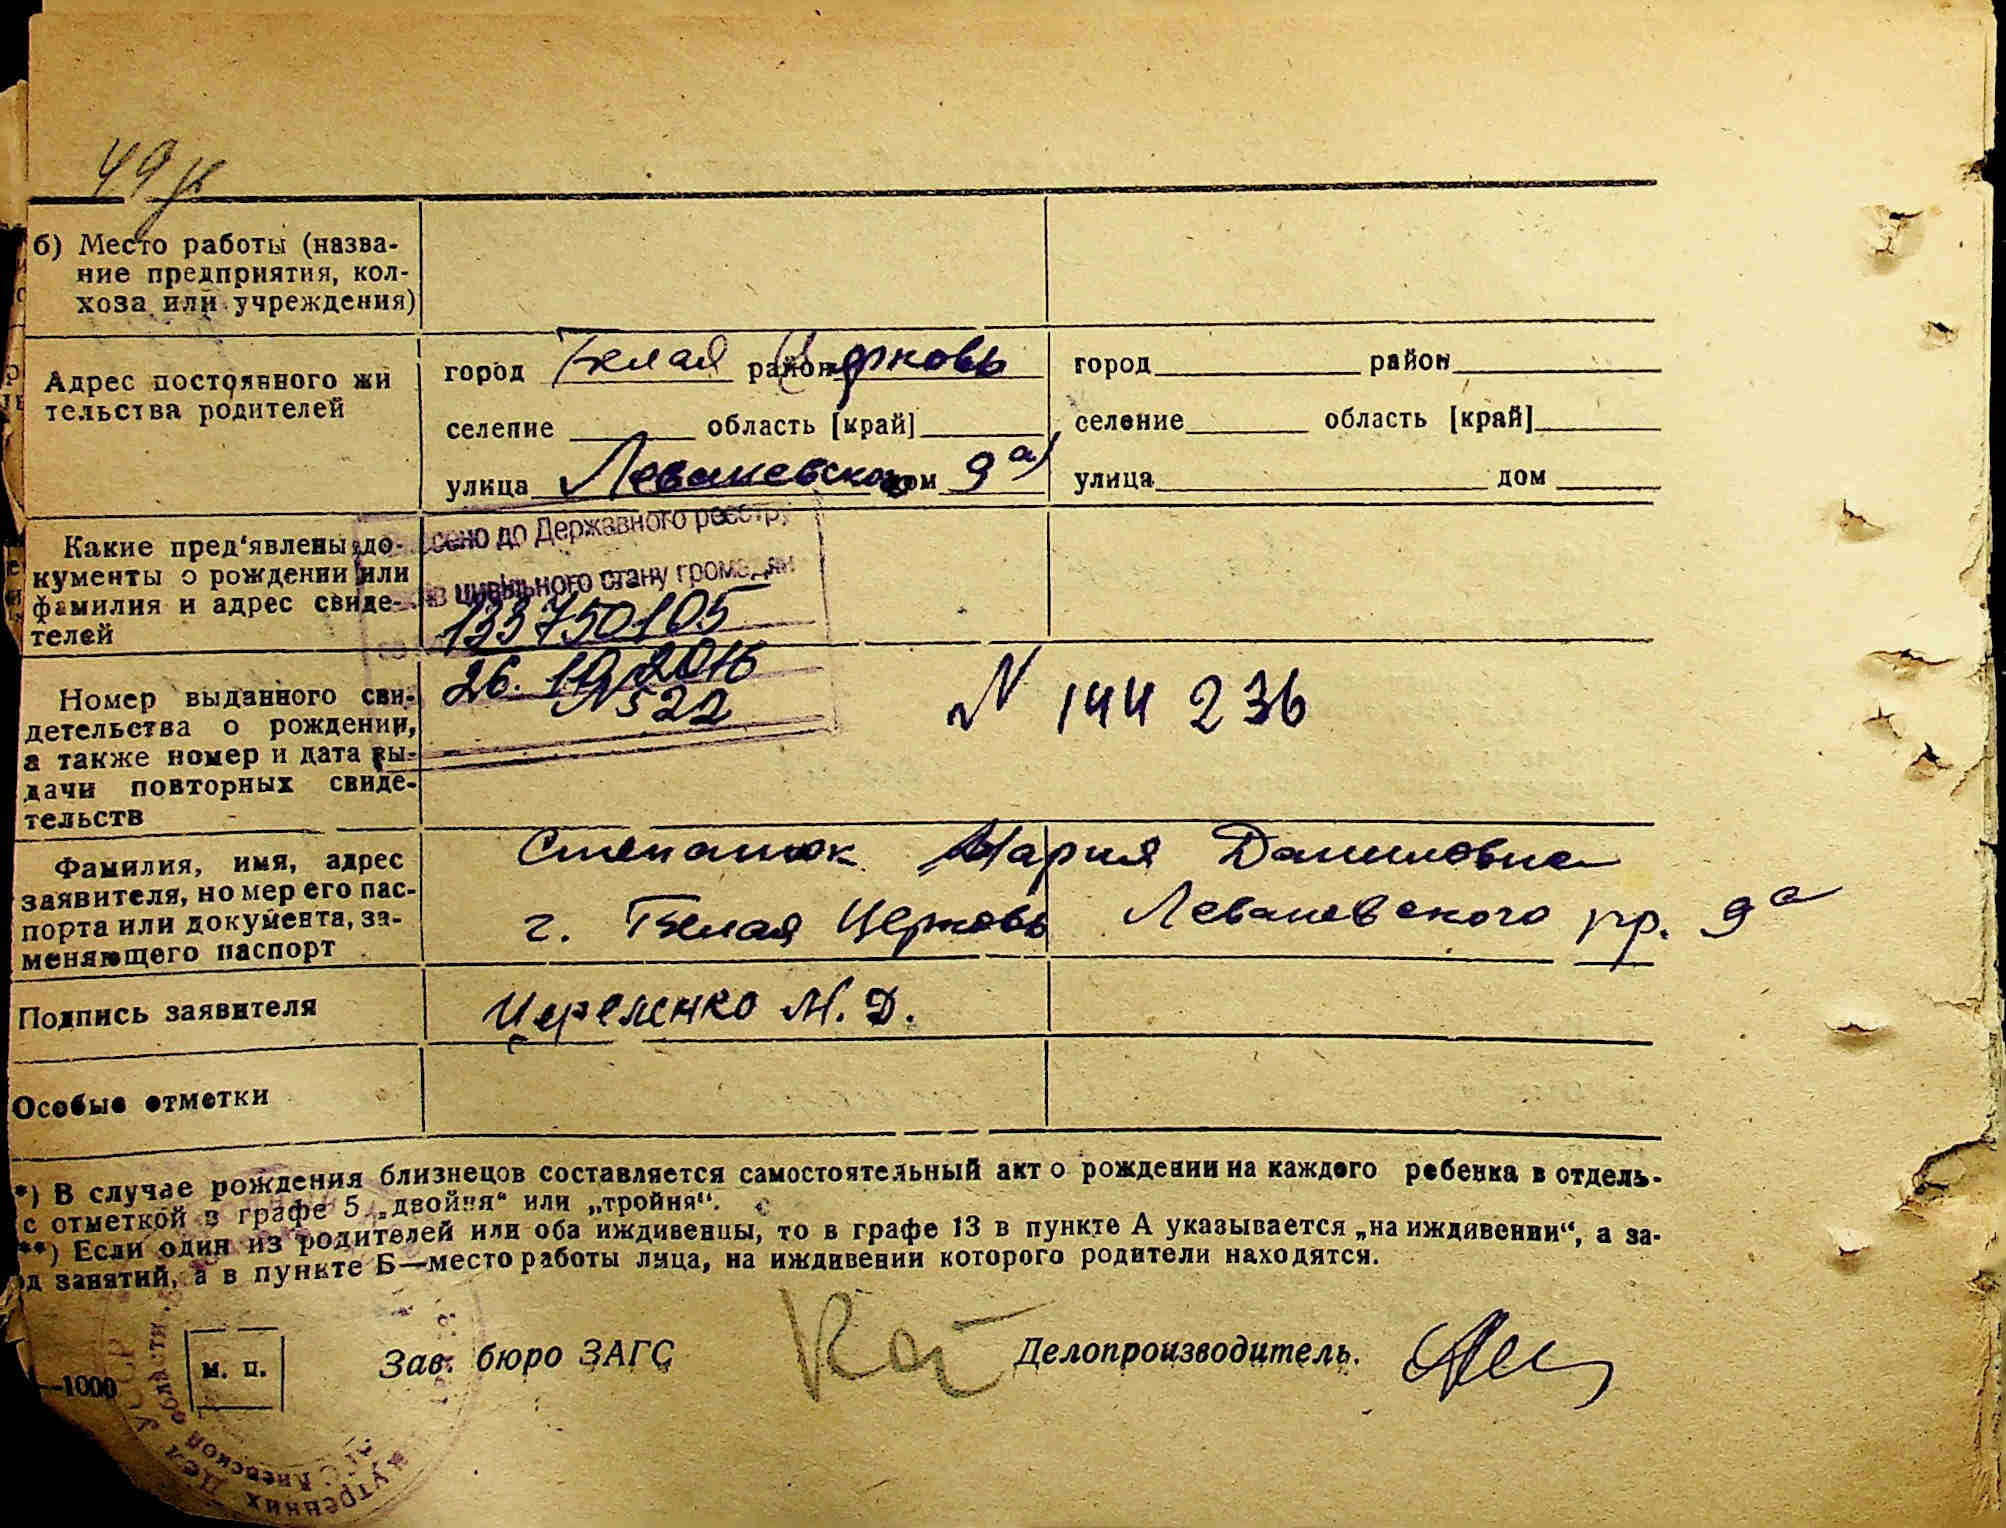 49
б) Место работы (назва-
ние предприятия, кол-
хоза или учреждения)
Адрес постоянного жи
тельства родителей
город Белая район Церковь
селение область [край]
улица Леваневского дом 9а
город район
селение область [край]
улица дом
Какие пред'явлены до-
кументы о рождении или
фамилия и адрес свиде-
телей
сено до Державного реєстру
ів цивільного стану громадян
133750105
26.10.2016
№522
Номер выданного сви-
детельства о рождении,
а также номер и дата вы-
дачи повторных свиде-
тельств
N 144 236
Фамилия, имя, адрес
заявителя, номер его пас-
порта или документа, за-
меняющего паспорт
Степанюк Мария Даниловна
г. Белая Церковь Леваневского пр. 9а
Подпись заявителя
М. Д.
Особые отметки
*) В случае рождения близнецов составляется самостоятельный акт о рождении на каждого ребенка в отдель-
с отметкой в графе 5 „двойня“ или „тройня“.
**) Если один из родителей или оба иждивенцы, то в графе 13 в пункте А указывается „на иждивении“, а за-
д занятий, а в пункте Б—место работы лица, на иждивении которого родители находятся.
—1000
м. п.
Зав. бюро ЗАГС
Делопроизводитель.
УССР
области
Киевской
внутренних Дел